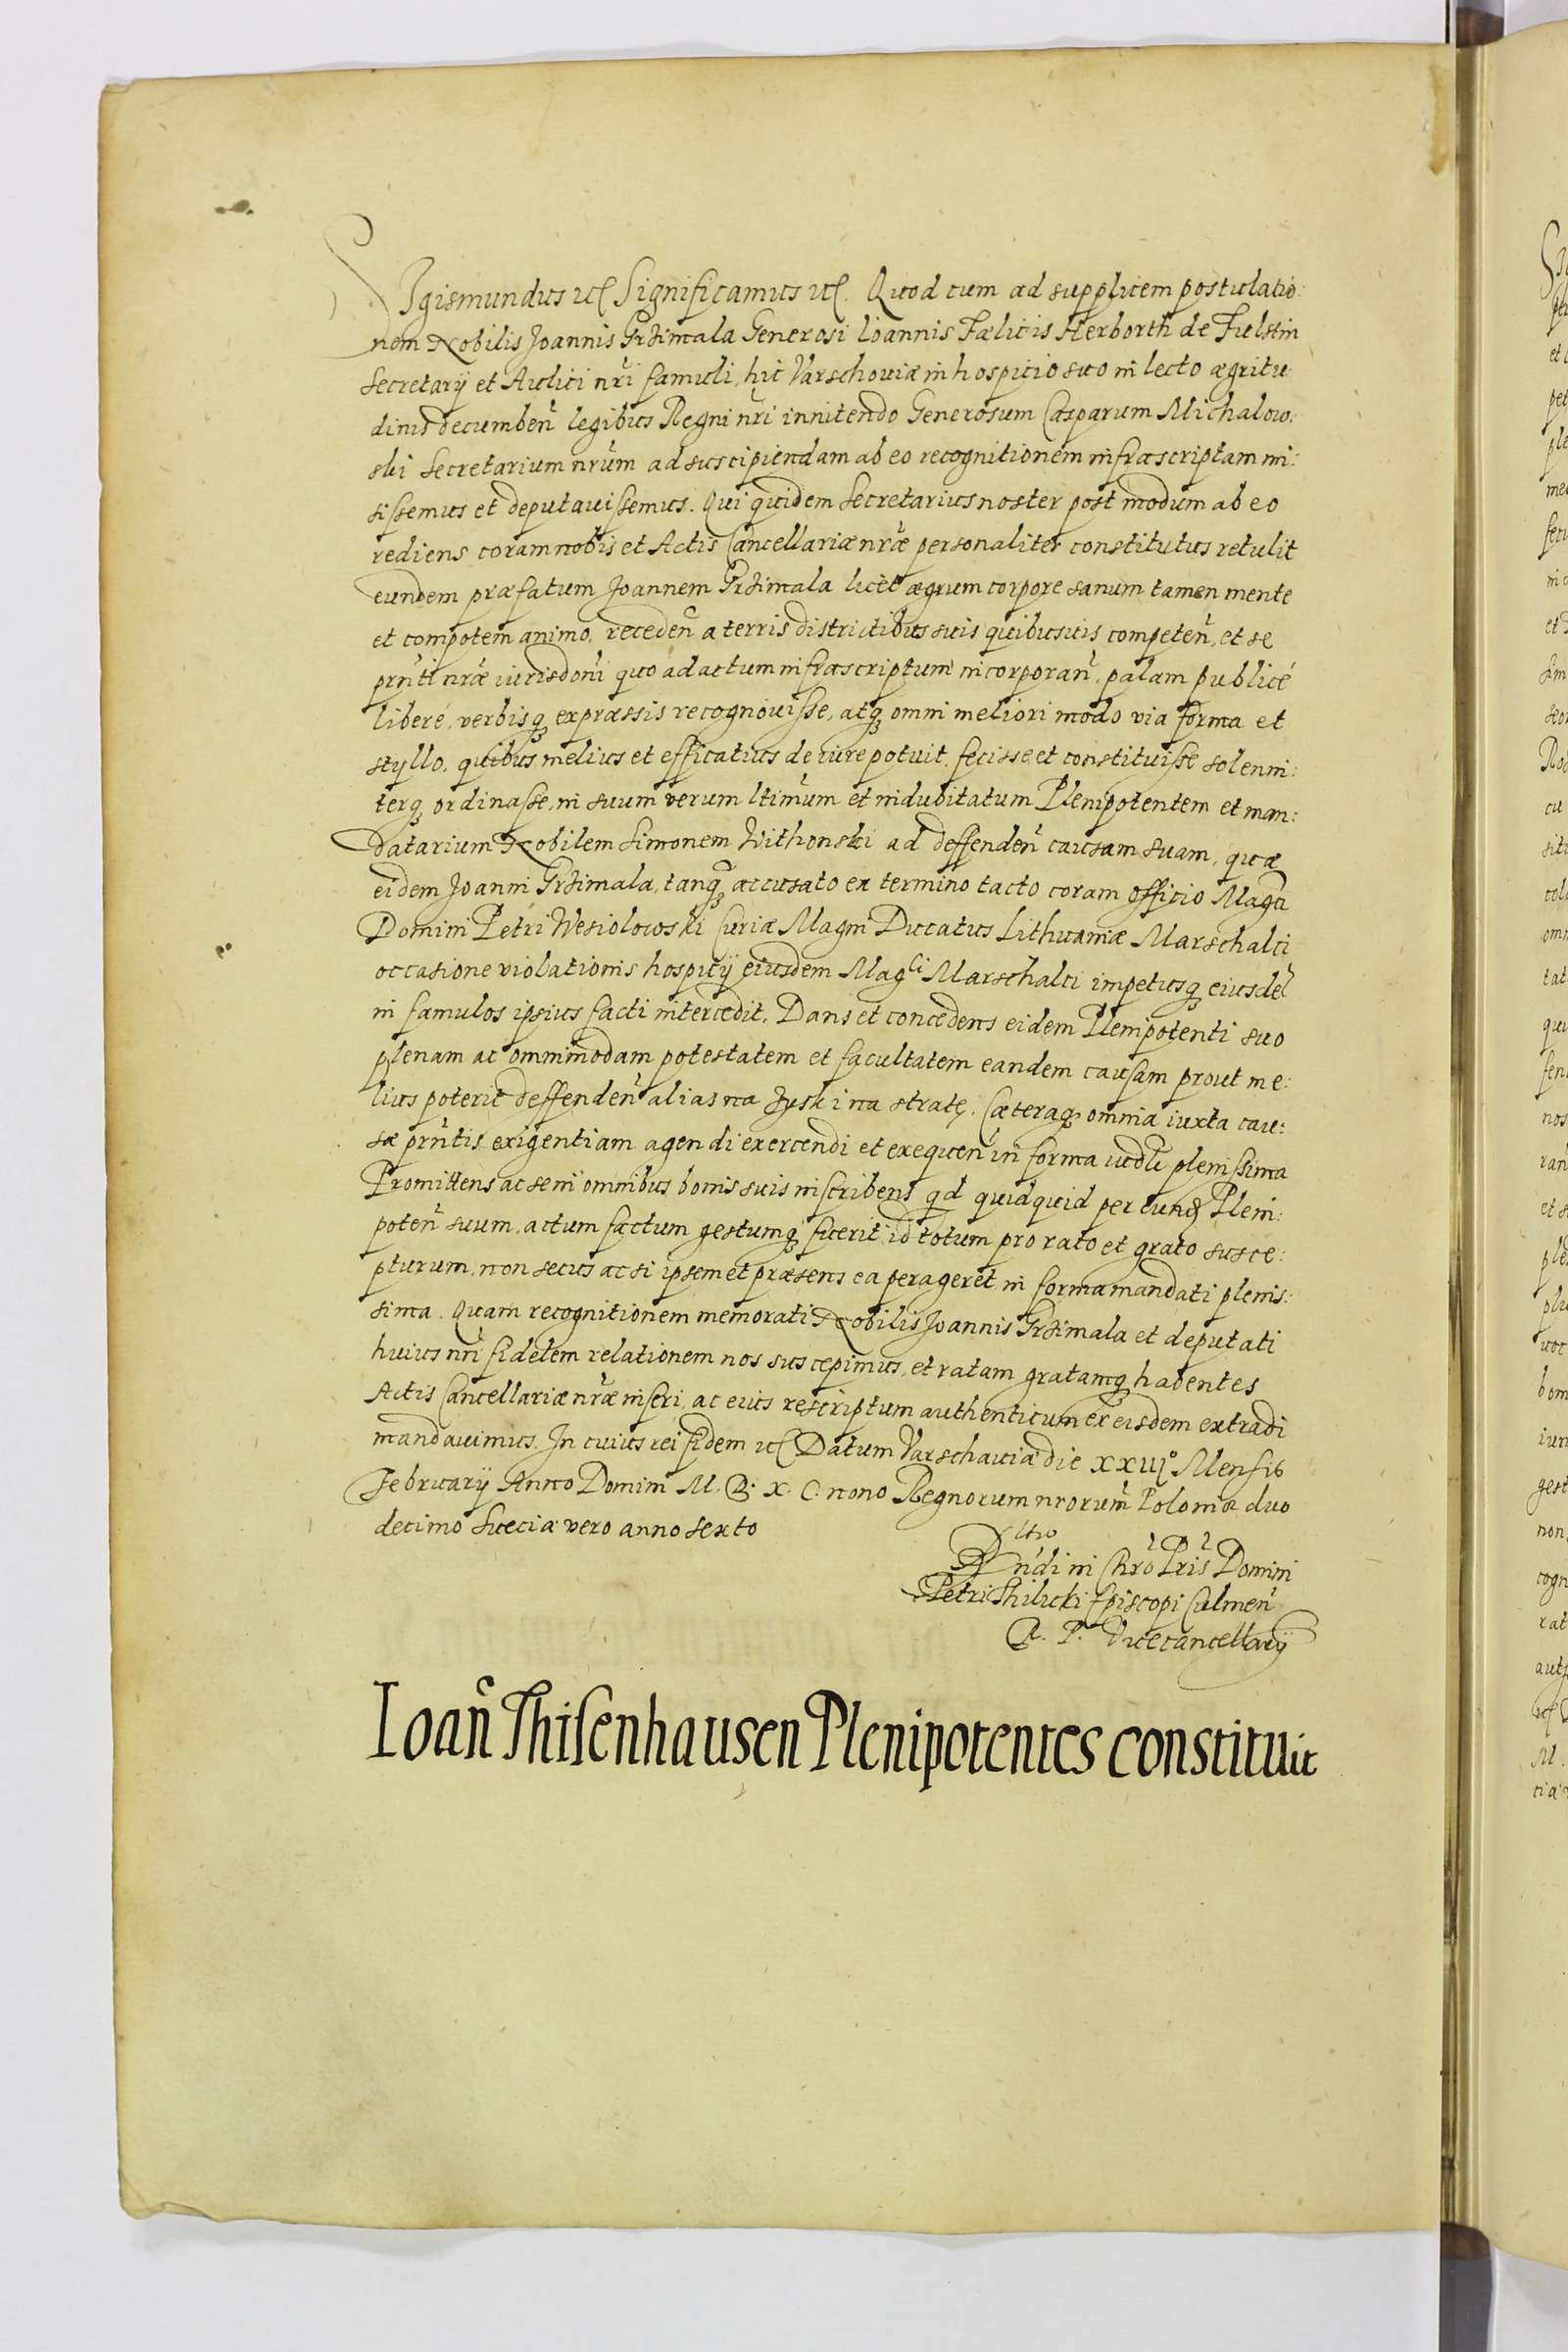 Sigismundus etc Significamus etc. Quod cum ad supplicem postulatio:
nem Nobilis Joannis Grzimala Generosi Joannis Fælicis Herborth de Fulstin
Secretarÿ et Aulici nr̃i famuli, hic Varschouiæ in hospicio suo in lecto ægritu
dinis decumben̄ legibus Regni nr̃i innitendo Generosum Casparum Michalow:
ski Secretarium nr̃um ad suscipiendam ab eo recognitionem infrascriptam mi:
sissemus et deputauissemus. Qui quidem Secretarius noster post modum ab eo
rediens coram nobis et Actis Cancellariæ nr̃æ personaliter constitutus retulit
eundem præfatum Joannem Grzimala licèt ægrum corpore sanum tamen mente
et compotem animo, receden̄ a terris districtibus suis quibusuis competen̄, et se
prn̄ti nr̃æ iurisdoni quo ad actum infrascriptum incorporan̄, palam publicé
liberé, verbisq3 expræssis recognouisse, atq3 omni meliori modo via forma et
styllo, quibus melius et efficatius de iure potuit, fecisse et constituisse solenni:
terq3 ordinasse, in suum verum ltimum et indubitatum Plenipotentem et man:
datarium Nobilem Simonem Withonski ad deffenden̄ causam suam, quæ
eidem Joanni Grzimala, tanq3 accusato ex termino tacto coram officio Magci
Domini Petri Wesiolowski Curiæ Magni Ducatus Lithuaniæ Marschalci
occasione violationis hospicÿ eiusdem Magci Marschalci impetusq3 eiusdē
in famulos ipsius facti intercedit. Dans et concedens eidem Plenipotenti suo
plenam ac omnimodam potestatem et facultatem eandem causam prout me:
lius poterit deffenden̄ alias na zysk i na stratę. Cæteraq3 omnia iuxta cau:
sæ prn̄tis exigentiam agendi exercendi et exequen̄ in forma iudti plenissima
Promittens ac se in omnibus bonis suis inscribens qd quidquid per eund Pleni:
poten̄ suum, actum factum gestumq3 fuerit, id totum pro rato et grato susce:
pturum, non secus ac si ipsemet præsens ea perageret in forma mandati plenis:
sima. Quam recognitionem memorati Nobilis Joannis Grzimala et deputati
huius nr̃i fidelem relationem nos suscepimus, et ratam gratamq3 habentes
Actis Cancellariæ nr̃æ inseri, ac eius rescriptum authenticum ex eisdem extradi
mandauimus. In cuius rei fidem etc Datum Varschauiæ die xxiij° Mensis
Februarÿ Anno Domini M. D. X. C. nono Regnorum nrorum̄ Poloniæ duo
decimo Sueciæ vero anno sexto
Rn̄di in Chro Pris Domini
Petri Thilicki Episcopi Culmen̄
R. P. Vicecancellarÿ
Ioan̄ Thisenhausen Plenipotentes constituit